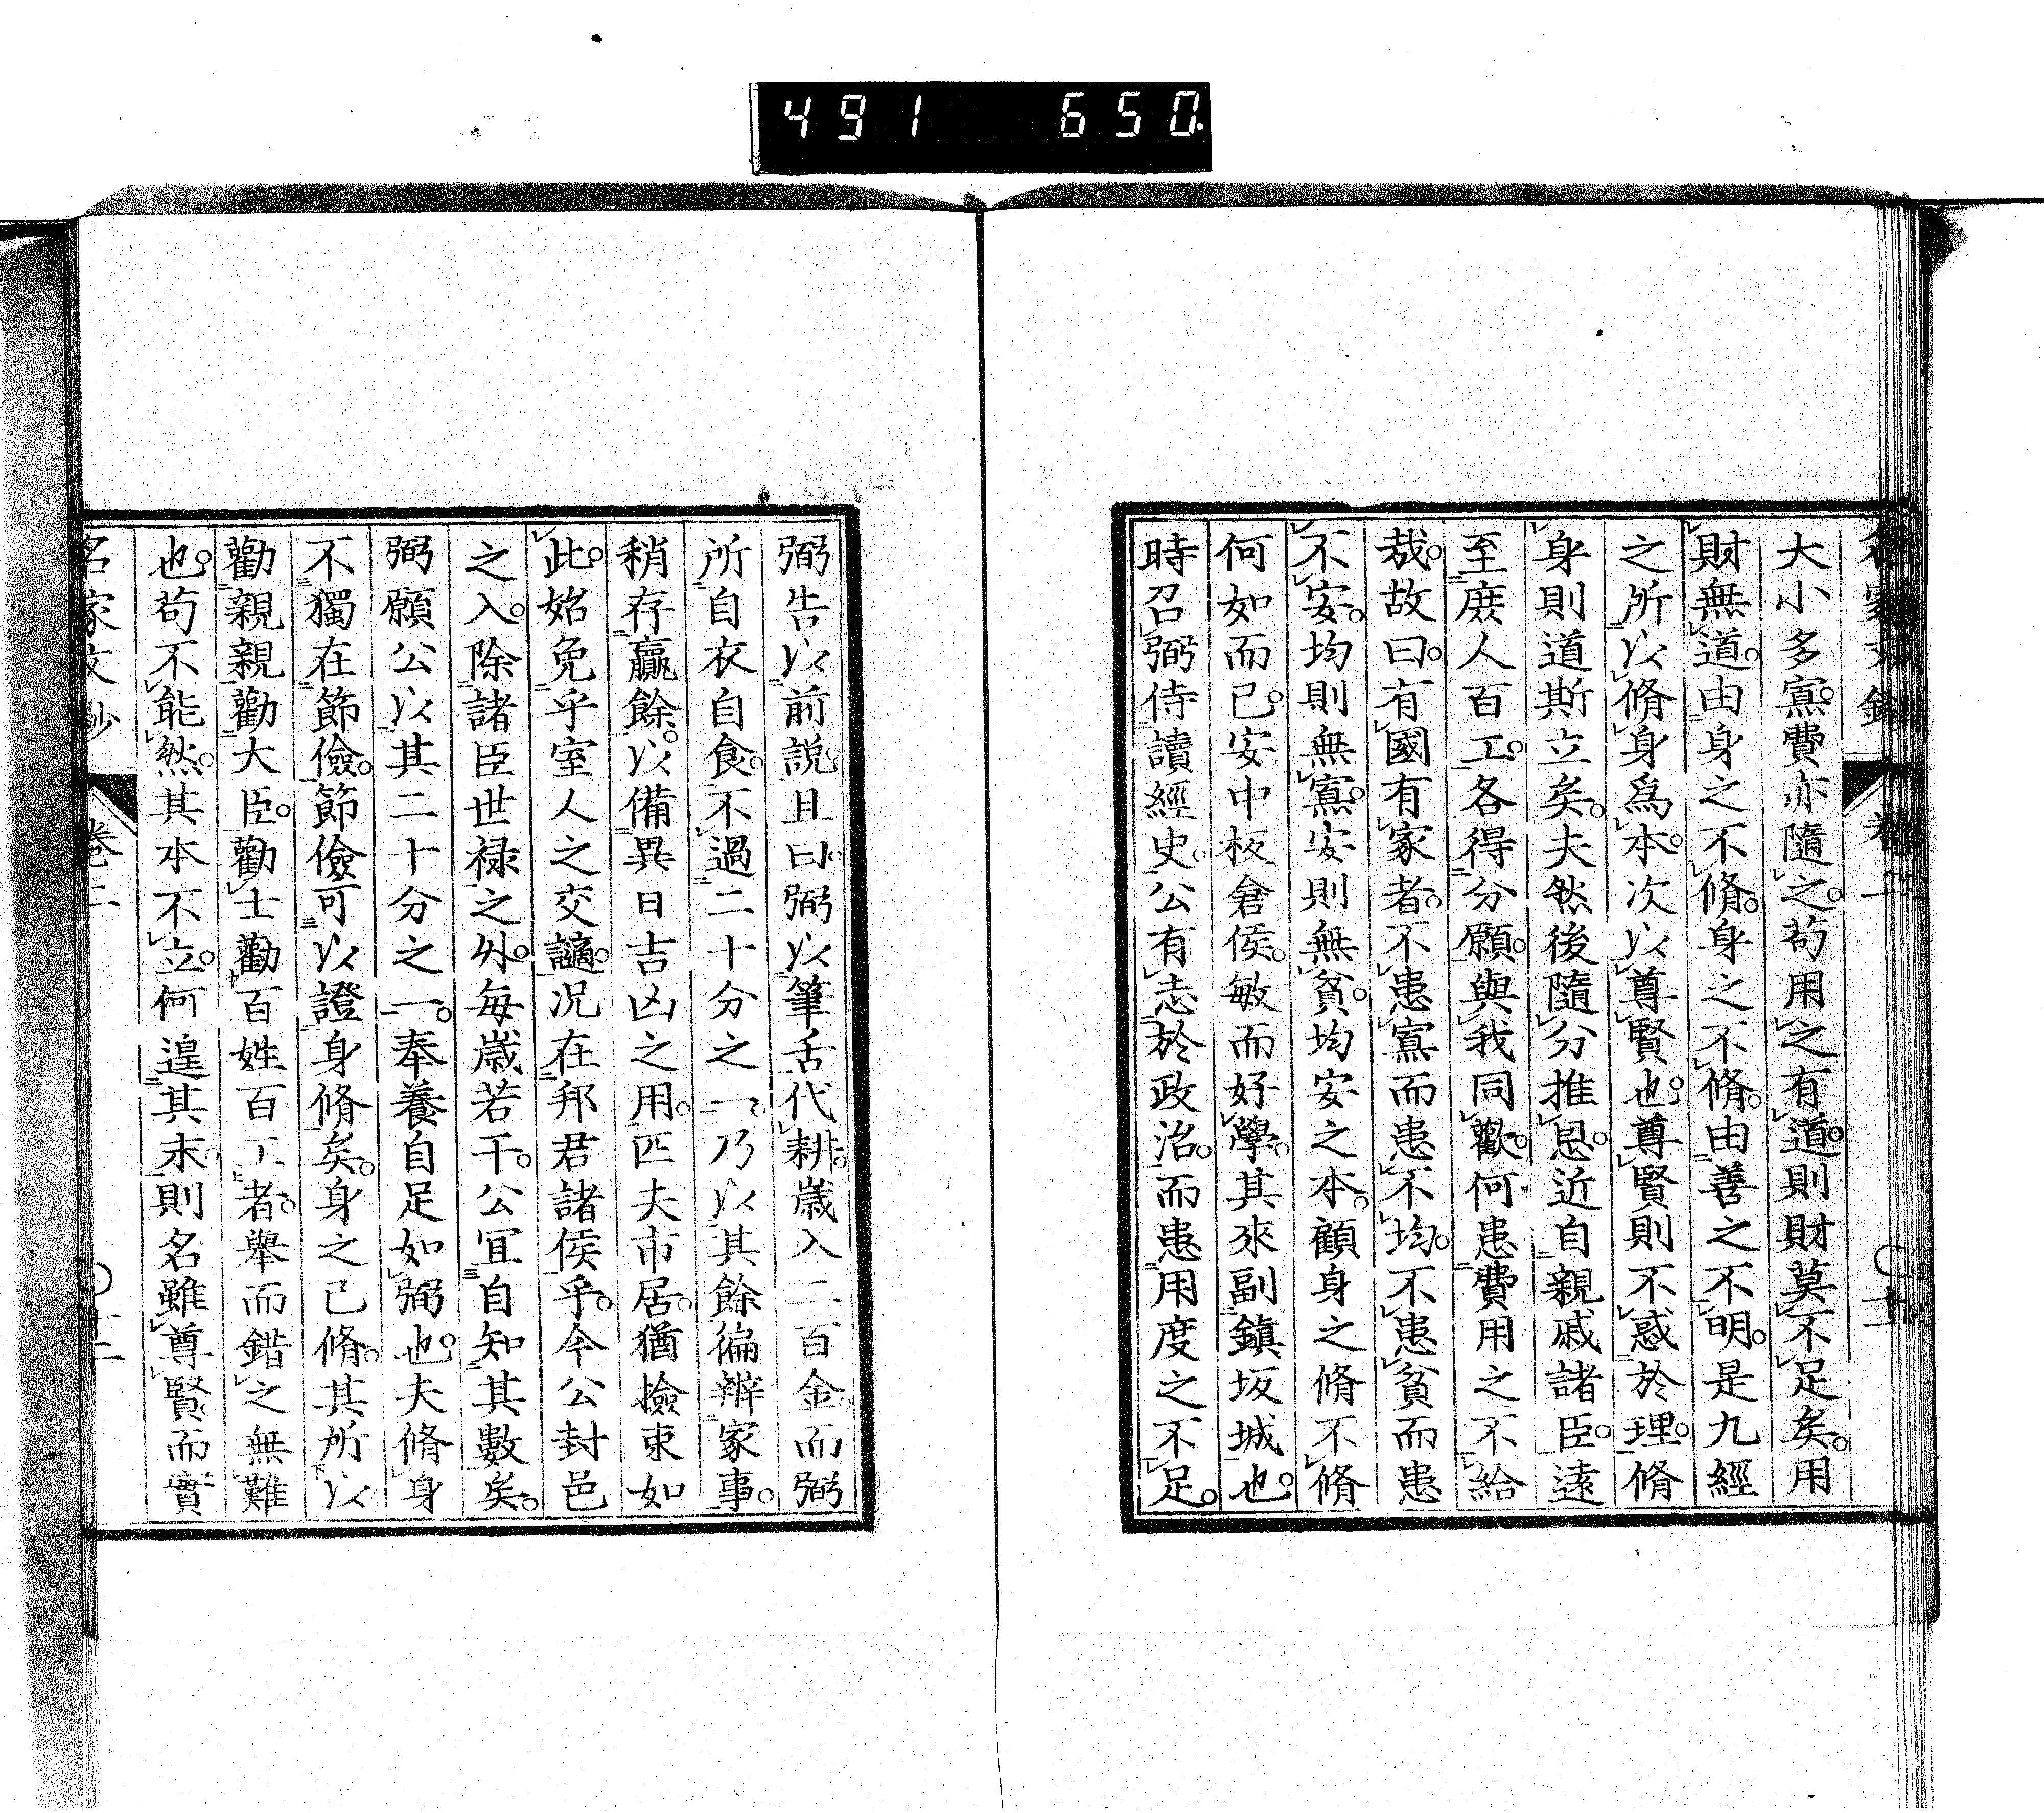 491 650
大小多寡。費亦隨之。苟用之有道。則財莫不足矣。用
財無道。由身之不脩。身之不脩。由善之不明。是九經
之所以脩身爲本。次以尊賢也。尊賢則不惑於理。脩
身則道斯立矣。夫然後隨分推恩。近自親戚諸臣。遠
至庶人百工。各得分願。與我同歡。何患費用之不給
哉。故曰。有國有家者。不患寡而患不均。不患貧而患
不安。均則無寡。安則無貧。均安之本。顧身之脩不脩
何如而已。安中板倉侯。敏而好學。其來副鎭坂城也。
時召弼侍讀經史。公有志於政治。而患用度之不足。
弼告以前説。且曰。弼以筆舌代耕。歲入二百金。而弼
所自衣自食。不過二十分之一。乃以其餘徧辦家事。
稍存贏餘。以備異日吉凶之用。匹夫市居。猶撿束如
此。始免乎室人之交讁。况在邦君諸侯乎。今公封邑
之入。除諸臣世禄之外。每歲若干。公宜自知其數矣。
弼願公以其二十分之一。奉養自足如弼也。夫脩身
不獨在節儉。節儉可以證身脩矣。身之已脩。其所以
勸親親勸大臣。勸士勸百姓百工者。擧而錯之無難
也。苟不能然。其本不立。何遑其末。則名雖尊賢。而實
名家文抄 卷二